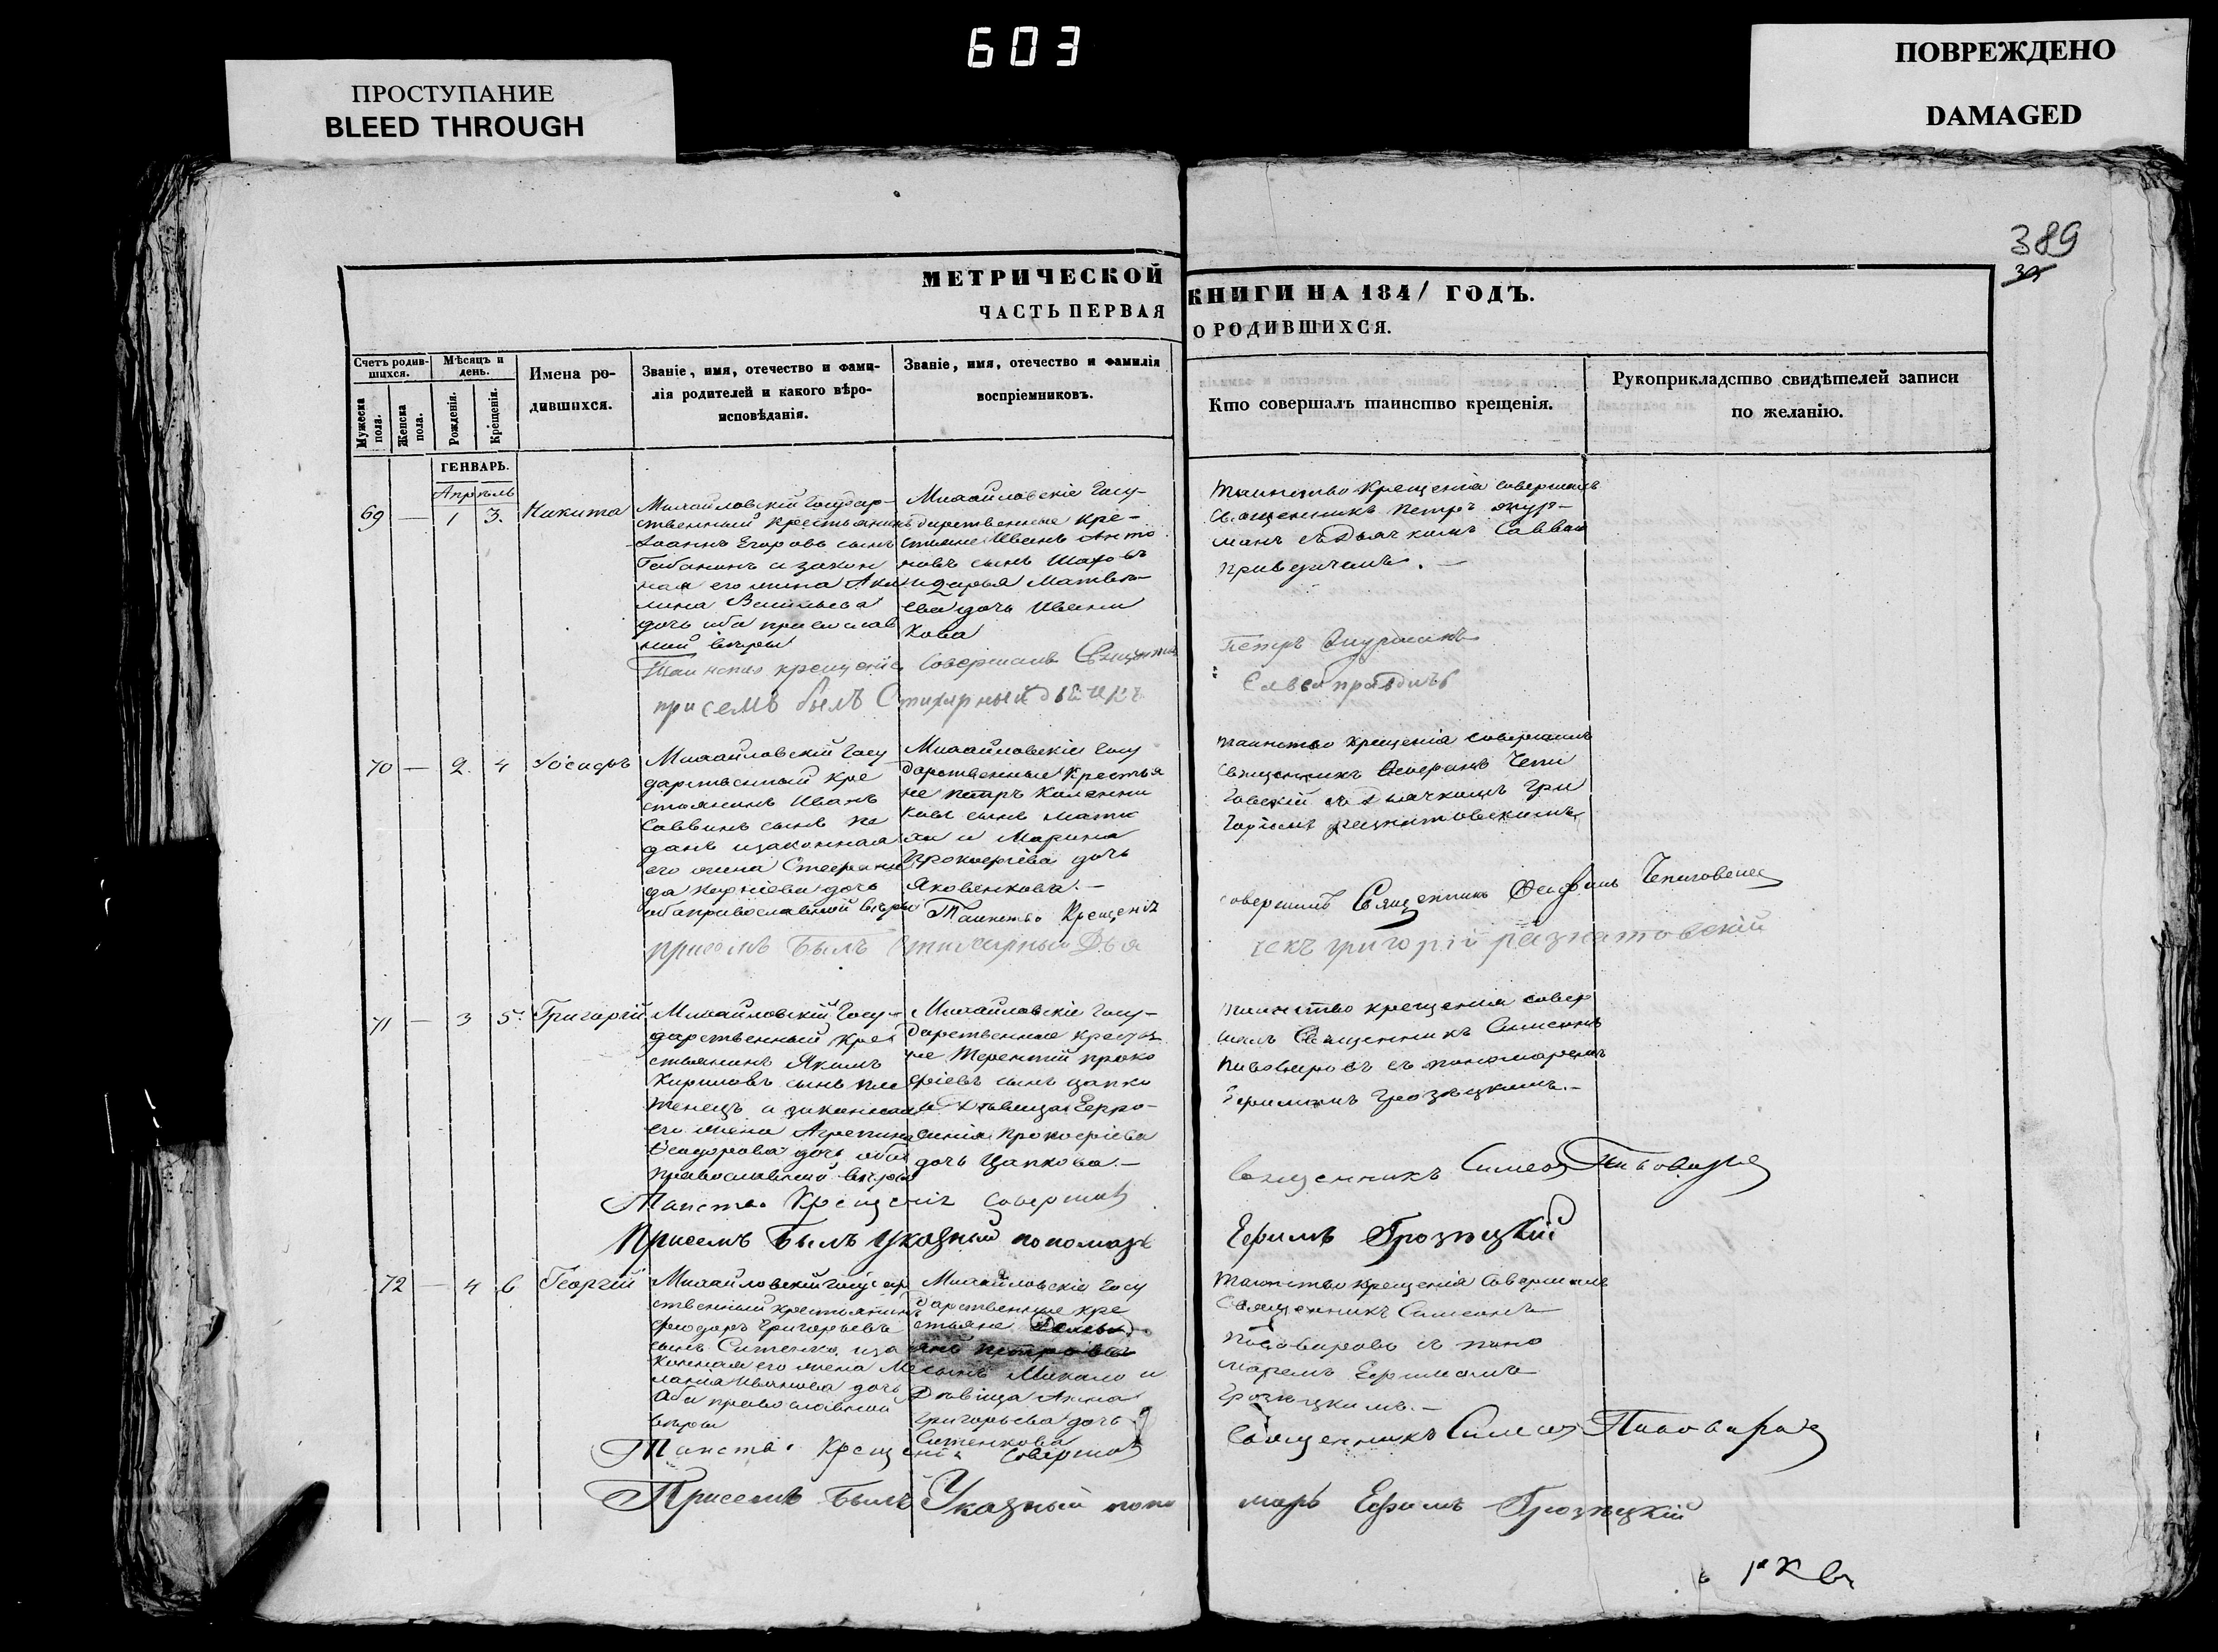 603
ПРОСТУПАНИЕ
BLEED THROUGH
ПОВРЕЖДЕНО
DAMAGED
389
МЕТРИЧЕСКОЙ КНИГИ НА 1841 ГОДЪ.
ЧАСТЬ ПЕРВАЯ О РОДИВШИХСЯ.
Счетъ родив-
шихся.
Мужеска
пола.
Женска
пола.
Мѣсяцъ и
день.
Рожденія.
Крещенія.
Имена ро-
дившихся.
Званіе, имя, отечество и фами-
лія родителей и какого вѣро-
исповѣданія.
Званіе, имя, отечество и фамилія
воспріемниковъ.
Кто совершалъ таинство крещенія.
Рукоприкладство свидѣтелей записи
по желанію.
ГЕНВАРЬ.
Апрѣль
69 — 1 3. Никита
Михайловскій Государ-
ственный крестьянинъ
Іоаннъ Егоровъ сынъ
и закон
ная его жена Аки
лина Васильева
дочь оба православ
ной вѣры
Михайловскіе Госу-
дарственные кре-
стьяне Иванъ Анто
новъ сынъ
и Дарья Матвѣе-
ва дочь Ивани
кова
Таинство крещенія совершалъ
Священникъ Петръ
съ Дьячкомъ Саввою
Таинство крещенія совершалъ Священник
Петръ
при семъ былъ Стихарный дьячикъ
70 — 2. 4
Михайловскій Госу
дарственный кре
стьянинъ Иванъ
Саввинъ сынъ
и законная
его жена Стефани
да дочь
оба православной вѣры
Михайловскіе Госу
дарственные крестья
не Петръ
сынъ
и Марина
Прокофіева дочь
Яковенкова. —
Таинство крещенія совершалъ
Священникъ
съ Дьячкомъ Гри
горіемъ Разнатовскимъ
Таинство Крещенія
совершилъ Священникъ
при семъ Былъ Стихарный Дья
чекъ Григорій Разнатовскій
71 — 3 5. Григорій
Михайловскій Госу-
дарственный Кре
стьянинъ Якимъ
Кириловъ сынъ Пле
тенецъ и законная
его жена Агрепина
Феодорова дочь оба
православной вѣры
Михайловскіе Госу-
дарственные крестья
не Терентій Проко
фіевъ сынъ Цапко
и Дѣвица Евро-
синія Прокофіева
дочь Цапкова. —
Таинство крещенія совер
шалъ Священникъ Симеонъ
Пивоваровъ съ пономаремъ
Ефимомъ Грозѣцкимъ. —
Таинство Крещенія совершилъ
Священникъ Симеонъ Пивоваровъ
При семъ Былъ Указный пономарь
Ефимъ Грозѣцкій
72 — 4 6 Георгій
Михайловскій Государ
ственный крестьянинъ
Феодоръ Григорьевъ
сынъ Ситенко, и за
конная его жена Ме
ланія Иванова дочь
Оба православной
вѣры
Михайловскіе Госу
дарственные кре
стьяне
сынъ и
Дѣвица Анна
Григорьева дочь
Ситенкова
Таинство крещенія Совершалъ
Священникъ Симеонъ
Пивоваровъ съ поно
маремъ Ефимомъ
Грозѣцкимъ. —
Таинство Крещенія совершилъ
Священникъ Симеонъ Пивоваровъ
При семъ Былъ Указный поно
марь Ефимъ Грозѣцкій